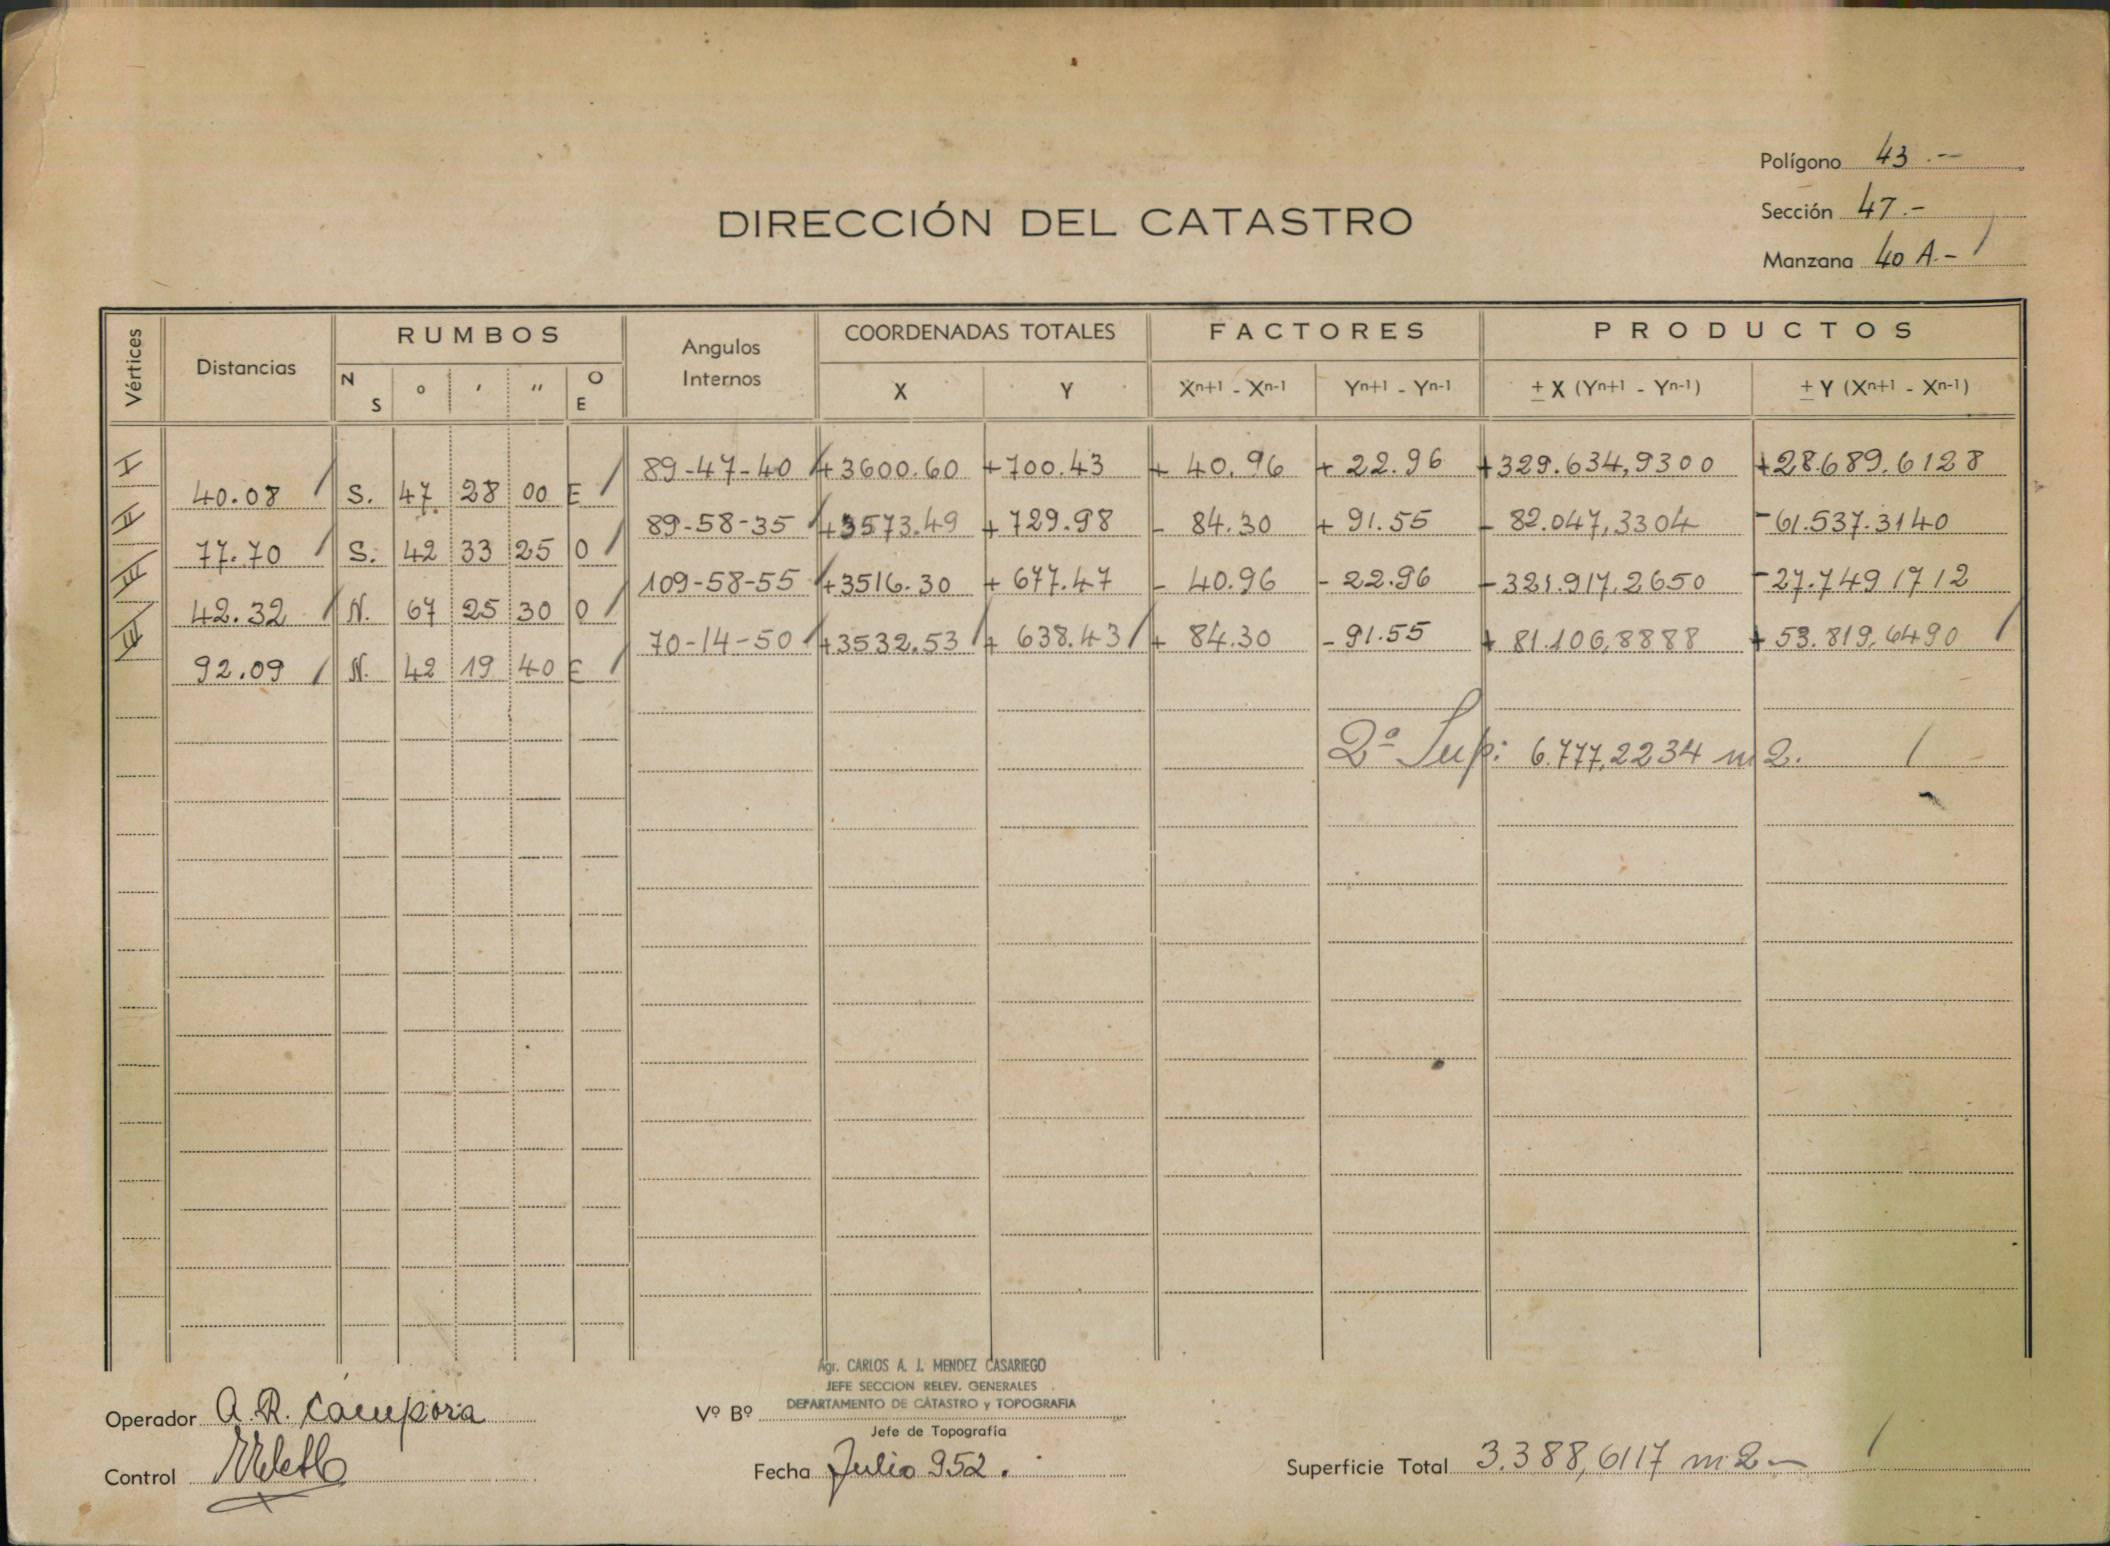 Polígono 43.-
DIRECCIÓN DEL CATASTRO
Sección 47.-
Manzana 40 A.-
Vértices Distancias RUMBOS Angulos Internos COORDENADAS TOTALES FACTORES PRODUCTOS
N S ° ' " O E X Y Xn+1 - Xn-1 Yn+1 - Yn-1 ± X (Yn+1 - Yn-1) ± Y (Xn+1 - Xn-1)
I 89-47-40 +3600.60 +700.43 + 40.96 + 22.96 +329.634,9300 +28.689.6128
40.08 S. 47 28 00 E
II 89-58-35 +3573.49 + 729.98 - 84.30 + 91.55 - 82.047,3304 -61.537.3140
77.70 S. 42 33 25 O
III 109-58-55 +3516.30 + 677.47 - 40.96 - 22.96 -321.917,2650 -27.749.1712
42.32 N. 67 25 30 O
IV 70-14-50 +3532.53 + 638.43 + 84.30 - 91.55 + 81.106,8888 + 53.819,6490
92.09 N. 42 19 40 E
2ª Sup: 6.777,2234 m2.
Agr. CARLOS A. J. MENDEZ CASARIEGO
JEFE SECCION RELEV. GENERALES
DEPARTAMENTO DE CATASTRO y TOPOGRAFIA
Operador A. R. Campora Vº Bº
Jefe de Topografía
Control Fecha Julio 952. Superficie Total 3.388,6117 m2-